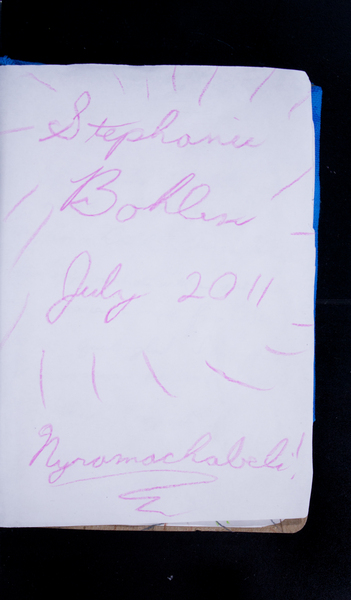 Stephanie
Bohlen
July 2011
Nyramachabeli!